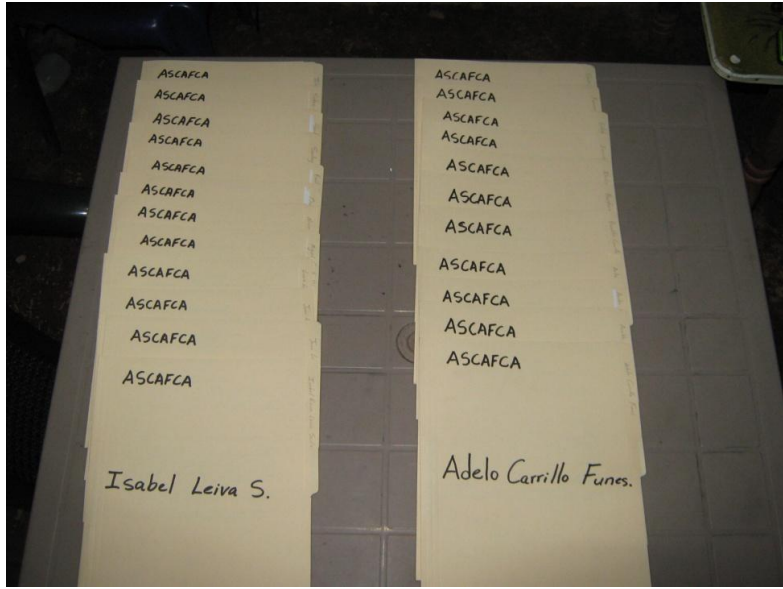 ASCAFCA
ASCAFCA
ASCAFCA
ASCAFCA
ASCAFCA
ASCAFCA
ASCAFCA
ASCAFCA
ASCAFCA
ASCAFCA
ASCAFCA
ASCAFCA
Isabel Leiva S.
ASCAFCA
ASCAFCA
ASCAFCA
ASCAFCA
ASCAFCA
ASCAFCA
ASCAFCA
ASCAFCA
ASCAFCA
ASCAFCA
ASCAFCA
Adelo Carrillo Funes.